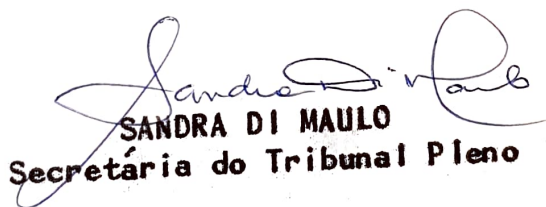 Sandra Di Maulo
SANDRA DI MAULO
Secretária do Tribunal Pleno